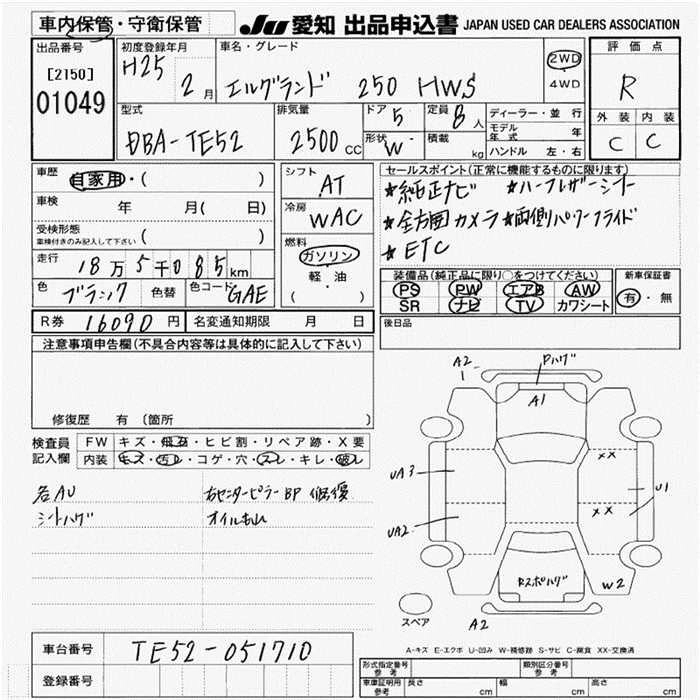 車内保管・守衛保管
JU 愛知 出品申込書 JAPAN USED CAR DEALERS ASSOCIATION
出品番号
[2150]
01049
初度登録年月
H25 2月
車名・グレード
エルグランド 250 HWS
2WD
4WD
評価点
R
外装 内装
C C
型式
DBA-TE52
排気量
2500 CC
ドア 5
形状 W
定員 8人
積載 kg
ディーラー・並行
モデル年式 年
ハンドル 左・右
車歴 自家用・( )
車検 年 月( 日)
受検形態
車検付きのみ記入して下さい ( )
走行 18万5千085km
色 ブラック 色替 色コード GAE
シフト AT
冷房 WAC
燃料
ガソリン
軽・油
( )
セールスポイント(正常に機能するものに限ります)
★純正ナビ ★ハーフレザーシート
★全方囲カメラ ★両側パワースライド
★ETC
装備品(純正品に限り○をつけてください)
PS PW エアB AW
SR ナビ TV カワシート
新車保証書
有・無
R券 16090円 名変通知期限 月 日
後日品
注意事項申告欄(不具合内容等は具体的に記入して下さい)
修復歴 有 〔箇所 〕
検査員記入欄
FW キズ・飛石・ヒビ割・リペア跡・X要
内装 キズ・汚レ・コゲ・穴・スレ・キレ・破レ
各AU
シートハゲ
右センターピラーBP 修復
オイルもれ
A2
1
Pハゲ
A1
UA3
UA2
XX
XX
U1
Rスポハゲ
W2
A2
スペア
A-キズ E-エクボ U-凹み W-補修跡 S-サビ C-腐食 XX-交換済
車台番号 TE52-051710
登録番号
形式指定番号 参考
類別区分番号 参考
車庫証明用 参考 長さ cm 幅 cm 高さ cm